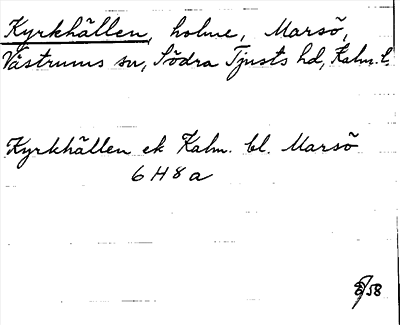 Kyrkhällen, holme, Marsö,
Västrums sn, Södra Tjusts hd, Kalm. l.
Kyrkhällen ek Kalm. bl. Marsö
6 H 8 a
/58